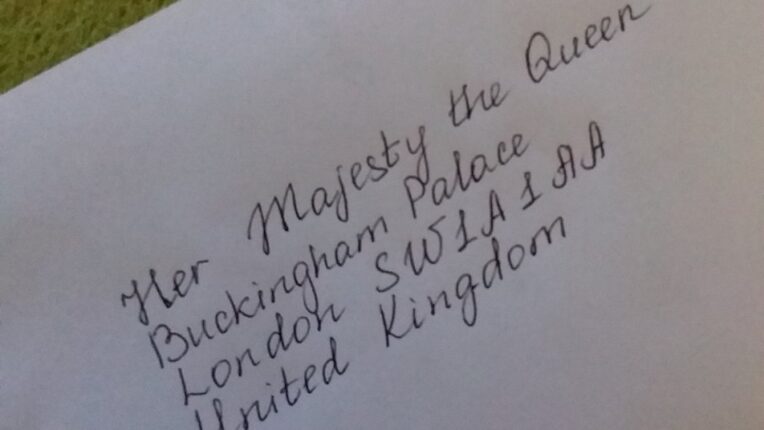 Her Majesty the Queen
Buckingham Palace
London SW1A 1AA
United Kingdom